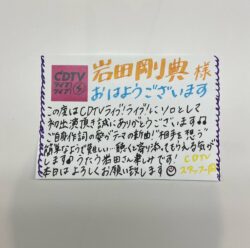 CDTV
ライブ!
ライブ!
岩田剛典 様
おはようございます
この度はCDTVライブ!ライブ!にソロとして
初出演頂き誠にありがとうございます♫
ご自身作詞の愛がテーマの新曲!"相手を想う"
簡単なようで難しい…聴くと寄り添ってもらえる気が
します♪うたう岩田さん楽しみです!
本日はよろしくお願い致します☺
CDTV
スタッフ一同